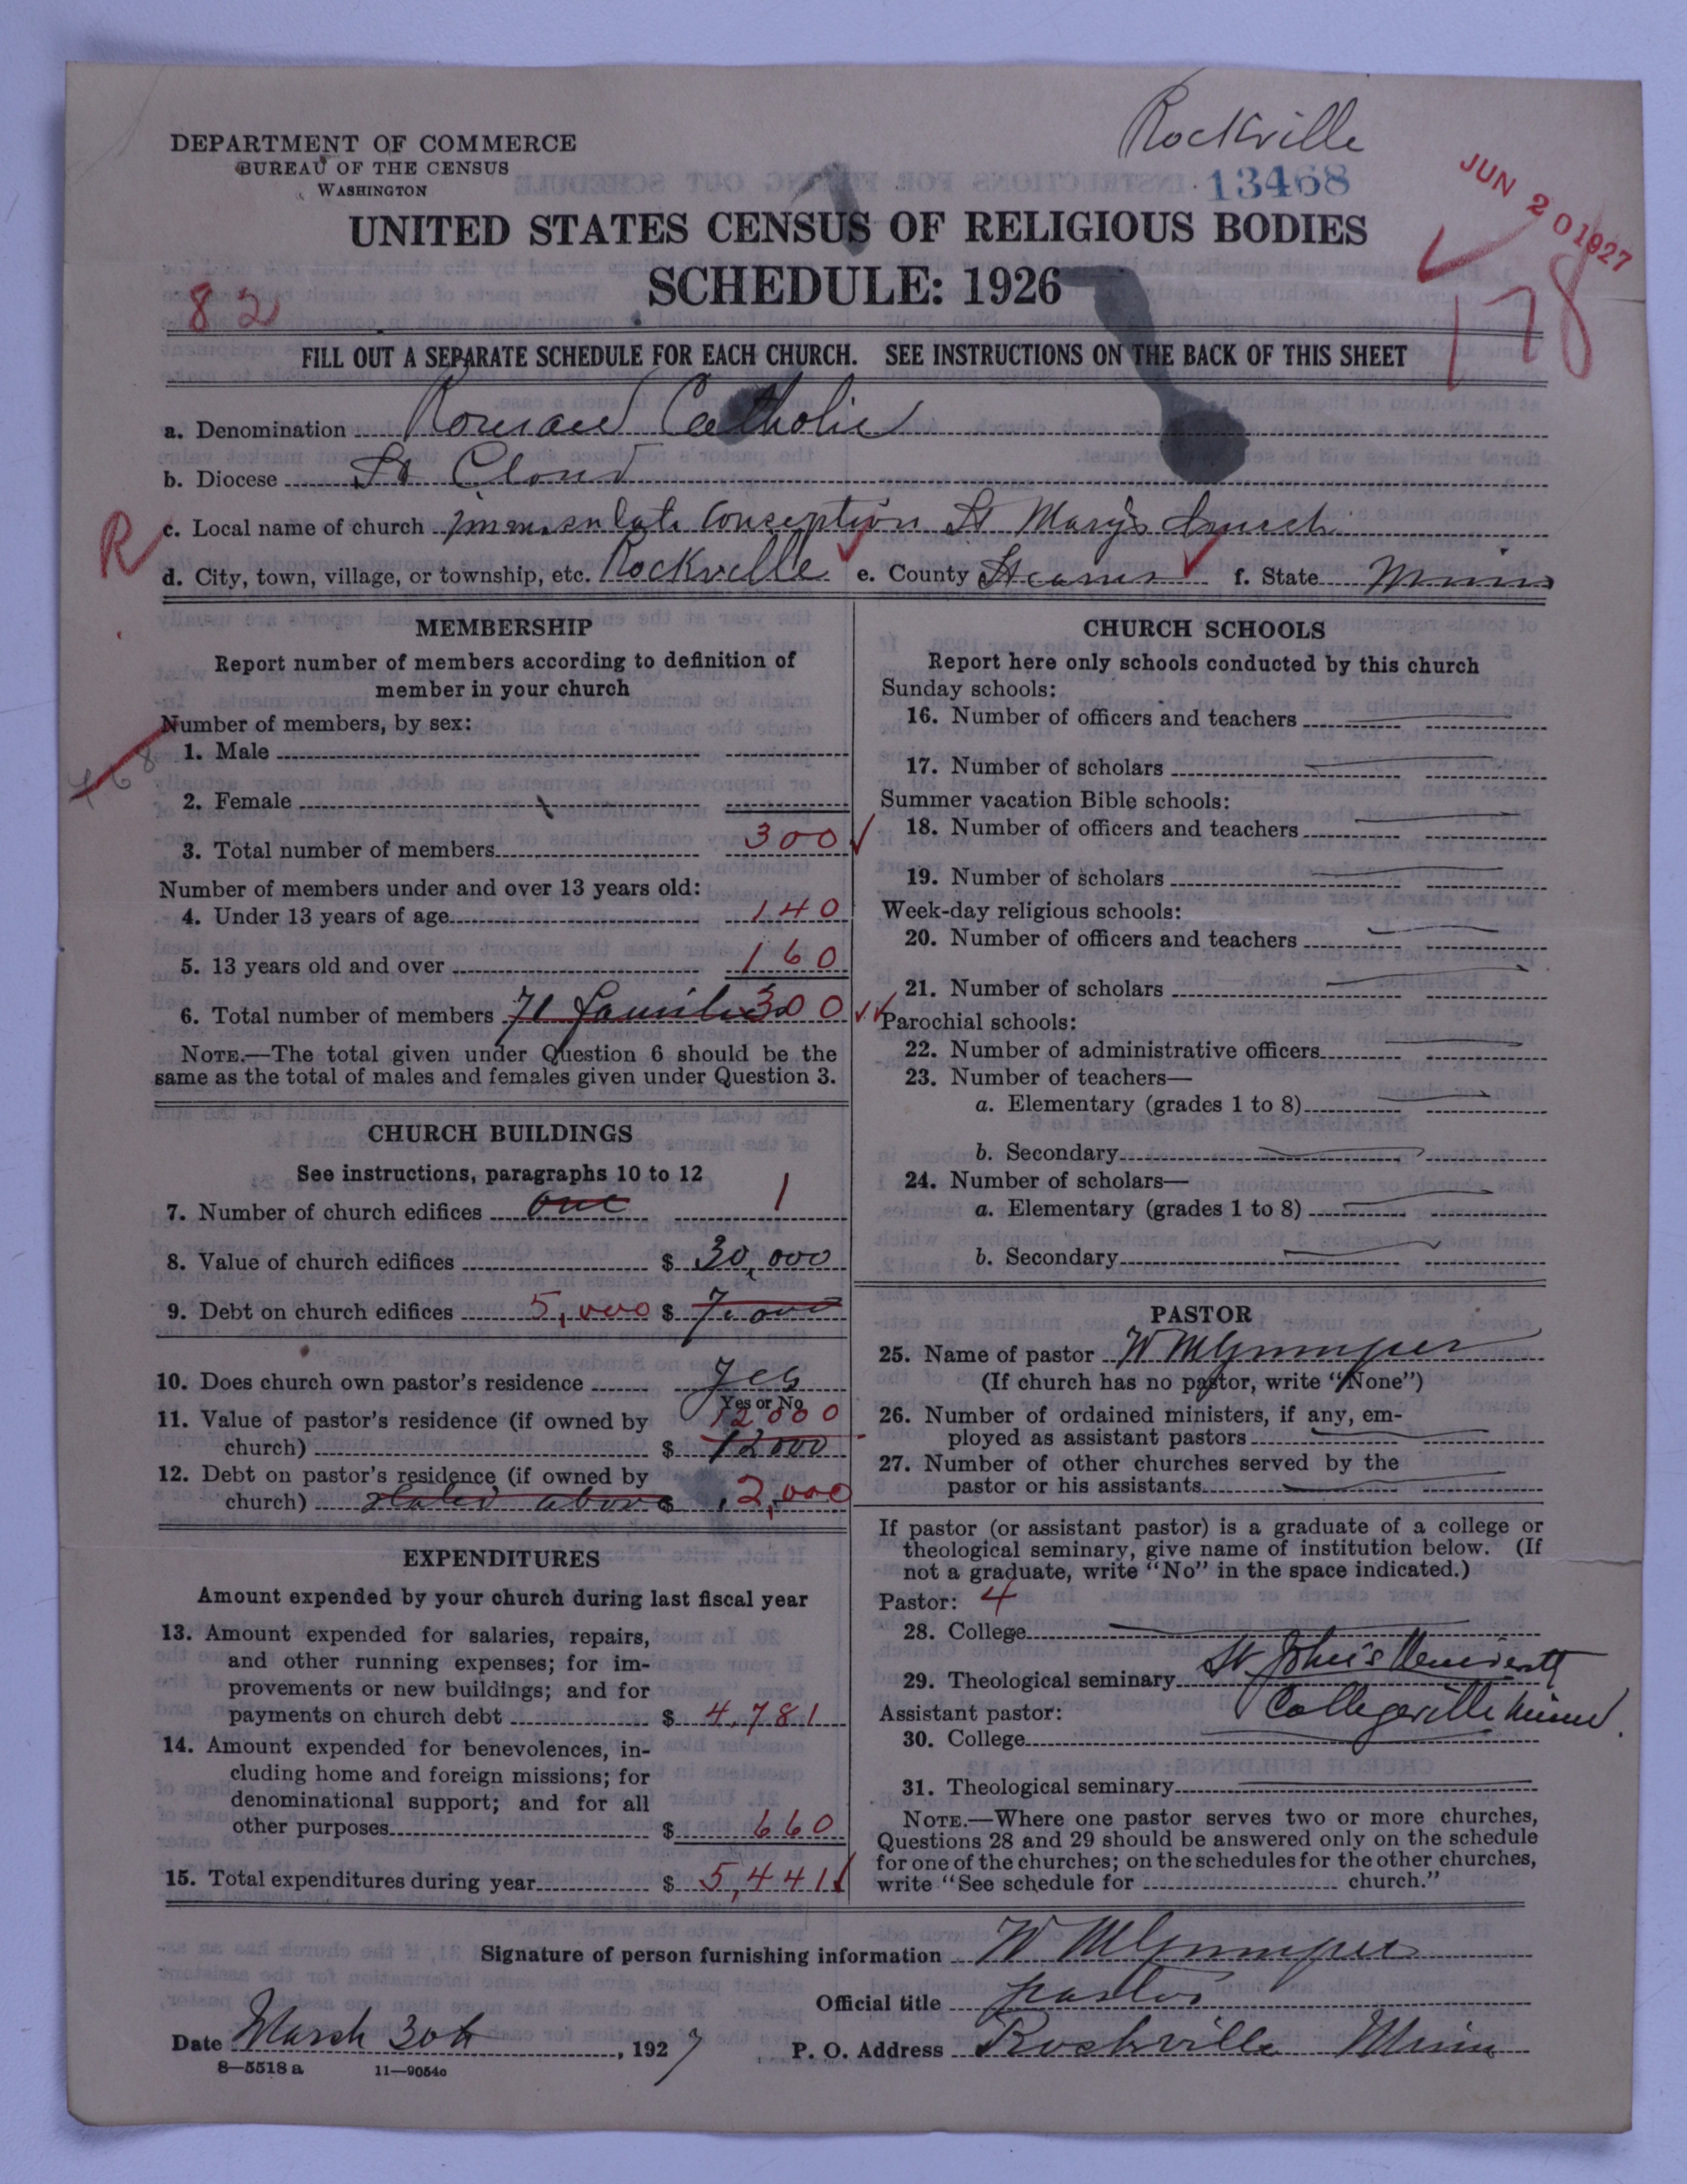 Rockville
DEPARTMENT OF COMMERCE
BUREAU OF THE CENSUS
WASHINGTON
13468
JUN 20 1927
UNITED STATES CENSUS OF RELIGIOUS BODIES
SCHEDULE: 1926
82
178
FILL OUT A SEPARATE SCHEDULE FOR EACH CHURCH. SEE INSTRUCTIONS ON THE BACK OF THIS SHEET
a. Denomination Roman Catholic
b. Diocese St Cloud
R
c. Local name of church Immaculate Conception St Mary's Church
d. City, town, village, or township, etc. Rockville e. County Stearns f. State Minn
MEMBERSHIP
Report number of members according to definition of
member in your church
Number of members, by sex:
1. Male
2. Female
3. Total number of members 300
Number of members under and over 13 years old:
4. Under 13 years of age 140
5. 13 years old and over 160
6. Total number of members 71 families 300
NOTE.—The total given under Question 6 should be the
same as the total of males and females given under Question 3.
CHURCH BUILDINGS
See instructions, paragraphs 10 to 12
7. Number of church edifices one 1
8. Value of church edifices $ 30,000
9. Debt on church edifices 5,000 $ 7,000
10. Does church own pastor's residence Yes
Yes or No
11. Value of pastor's residence (if owned by 12000
church) $ 12000
12. Debt on pastor's residence (if owned by
church) stated above $ 2,000
EXPENDITURES
Amount expended by your church during last fiscal year
13. Amount expended for salaries, repairs,
and other running expenses; for im-
provements or new buildings; and for
payments on church debt $ 4,781
14. Amount expended for benevolences, in-
cluding home and foreign missions; for
denominational support; and for all
other purposes $ 660
15. Total expenditures during year $ 5,441
CHURCH SCHOOLS
Report here only schools conducted by this church
Sunday schools:
16. Number of officers and teachers
17. Number of scholars
Summer vacation Bible schools:
18. Number of officers and teachers
19. Number of scholars
Week-day religious schools:
20. Number of officers and teachers
21. Number of scholars
Parochial schools:
22. Number of administrative officers
23. Number of teachers—
a. Elementary (grades 1 to 8)
b. Secondary
24. Number of scholars—
a. Elementary (grades 1 to 8)
b. Secondary
PASTOR
25. Name of pastor W
(If church has no pastor, write "None")
26. Number of ordained ministers, if any, em-
ployed as assistant pastors
27. Number of other churches served by the
pastor or his assistants
If pastor (or assistant pastor) is a graduate of a college or
theological seminary, give name of institution below. (If
not a graduate, write "No" in the space indicated.)
Pastor: 4
28. College
29. Theological seminary St John's University
Assistant pastor: Collegeville Minn.
30. College
31. Theological seminary
NOTE.—Where one pastor serves two or more churches,
Questions 28 and 29 should be answered only on the schedule
for one of the churches; on the schedules for the other churches,
write "See schedule for church."
Signature of person furnishing information W
Official title pastor
Date March 30th, 1927 P. O. Address Rockville Minn
8—5518 a 11—9054c